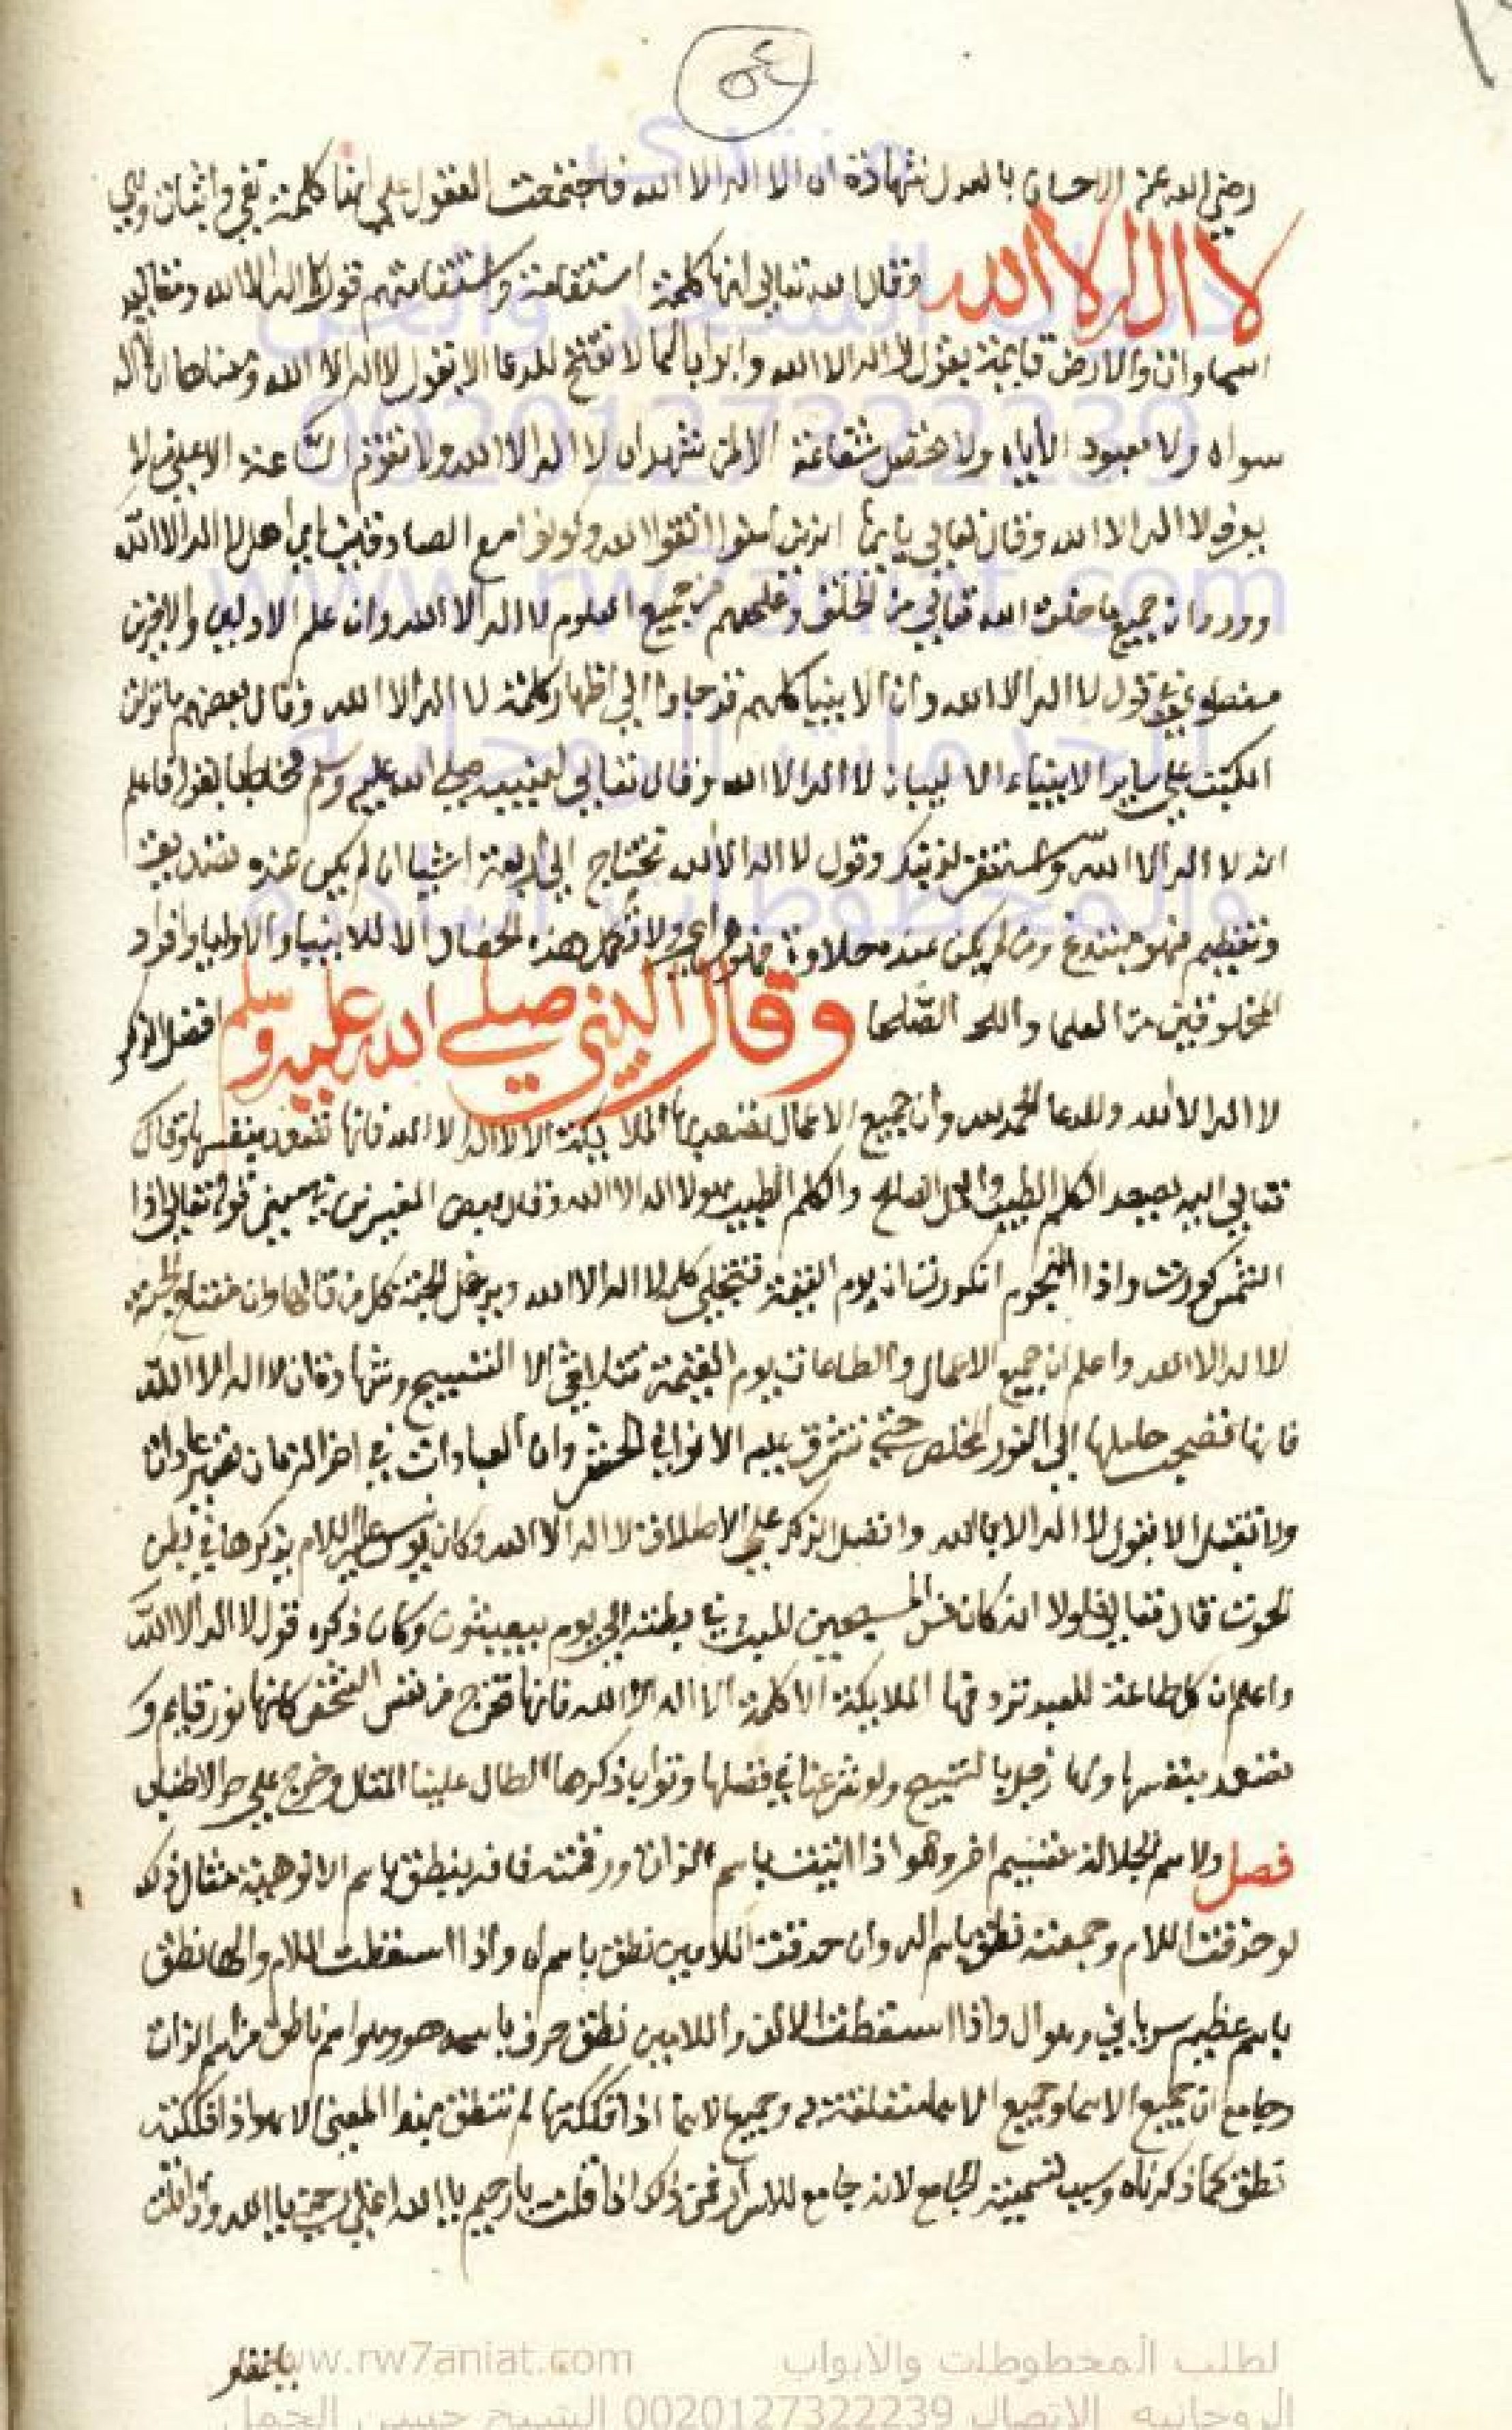 ٥٤
رضي الله عنه الاحسان بالعدل شهادة ان لا اله الا الله فاجتمعت العقول على انها كلمة نفي واثبات وهي
لا اله الا الله وقال الله تعالى انها كلمة استقامة واستقامتهم قول لا اله الا الله ومقاليد
السماوات والارض قايمة بقول لا اله الا الله وابواب السما لا تفتح للدعا الا بقول لا اله الا الله ومعناها ان لا اله
سواه ولا معبود الا اياه ولا تحصل شفاعة الا لمن شهد ان لا اله الا الله ولا تقوم الساعة الا على من لا
يعرف لا اله الا الله وقال تعالى يايها الذين امنوا اتقوا الله وكونوا مع الصادقين اي اهل لا اله الا الله
وورد ان جميع ما خلق الله تعالى من الخلق وعلمهم من جميع العلوم لا اله الا الله وان علم الاولين والاخرين
قول لا اله الا الله وان الانبيا كلهم قد جاوا الى اظهار كلمة لا اله الا الله وقال بعضهم ما نزلت
الكتب على ساير الانبياء الا لبيان لا اله الا الله وقال تعالى لنبيه صلى الله عليه وسلم مخاطبا بقوله فاعلم
انه لا اله الا الله واستغفر لذنبك وقول لا اله الا الله تحتاج الى اربعة اشيا ان لم يكن عنده تصديق
وتعظيم فهو مبتدع ومن لم يكن عنده حلاوة فهو ولا تكمل هذه الخصال الا للانبيا والاوليا وافراد
المخلوقين من العلما والصلحا وقال النبي صلى الله عليه وسلم افضل الذكر
لا اله الا الله والدعا الحمد لله وان جميع الاعمال تصعد بها الملايكة الا لا اله الا الله فانها تصعد بنفسها وقال
تعالى اليه يصعد الكلم الطيب والعمل الصالح والكلم الطيب هو لا اله الا الله وقال بعض المفسرين في معنى قوله تعالى اذا
الشمس كورت واذا النجوم انكدرت ان يوم القيمة تتجلى كلمة لا اله الا الله ويدخل الجنة كل من قالها وان مفتاح الجنة
لا اله الا الله واعلم ان جميع الاعمال والطاعات يوم القيمة تتلاشى الا التسبيح وشهادة ان لا اله الا الله
فانها الى النور المخلص حتى تشرق عليه الانوار في الحشر وان العبادات في اخر الزمان تصير عادات
ولا تقبل الا بقول لا اله الا الله وافضل الذكر على الاطلاق لا اله الا الله وكان يونس عليه السلام يذكرها في بطن
الحوت قال تعالى فلولا انه كان من المسبحين للبث في بطنه الى يوم يبعثون وكان ذكره قول لا اله الا الله
واعلم ان كل طاعة للعبد الملايكة الا كلمة لا اله الا الله فانها تخرج من نفس الشخص كانها نور قايم و
تصعد بنفسها ولها زجل بالتسبيح ولو شرعنا في فضلها وثواب ذكرها لطال علينا وخرج على
فصل ولاسم الجلالة تقسيم اخر وهو اذا اتيت باسم الذات ورقمته فانه ينطق باسم الالوهية مثال ذلك
لو حذفت اللام وجمعته نطق باسم اله وان حذفت اللامين نطق باسم اه واذا اسقطت اللام والها نطق
باسم عظيم سرياني وهو ال واذا اسقطت الالف واللامين نطق حرف باسمه هو وهو اسم ناطق من اسم الذات
وجامع ان جميع الاسما وجميع الاسما متعلقة به وجميع الاسما اذا فككتها لم تنطق بهذا المعنى الا هو اذا فككته
نطق كما ذكرناه وسبب تسمية الجامع لانه جامع للاسرار فمن ذلك اذا قلت يا رحيم يا الله واذا قلت
www.rw7aniat.com
لطلب المخطوطات والابواب
الروحانيه الاتصال 0020127322239